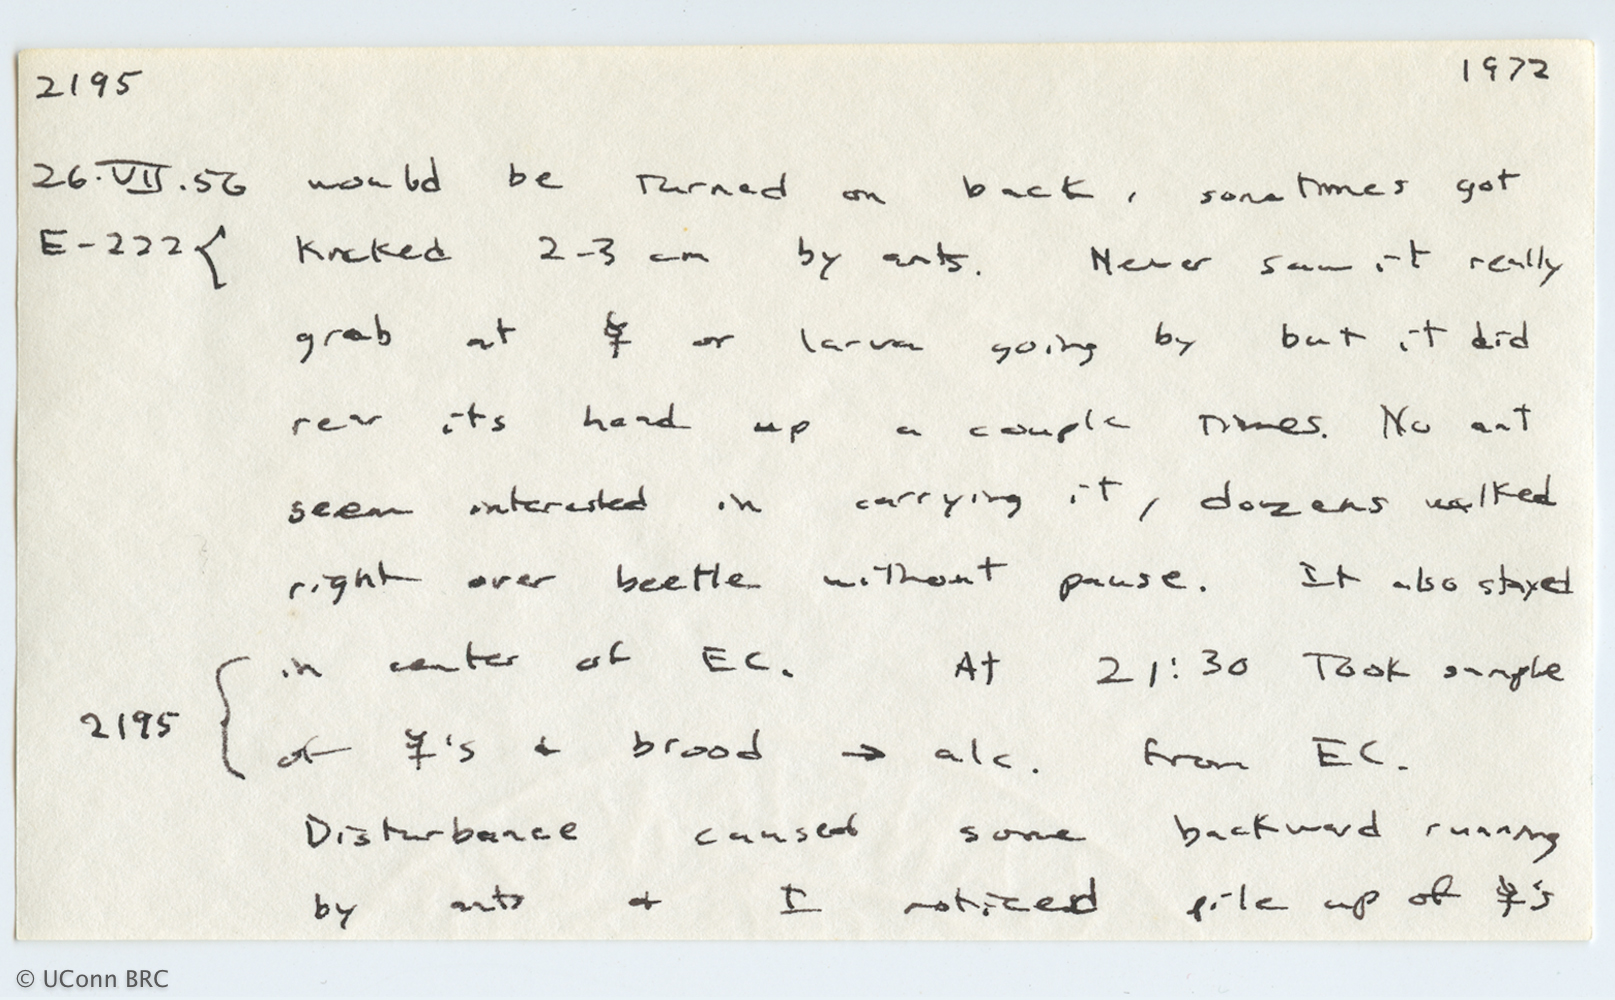 2195 1972
26.VII.56 would be turned on back, sometimes got
E-222 { kicked 2-3 cm by ants. Never saw it really
grab at ☿ or larva going by but it did
rear its head up a couple times. No ant
seem interested in carrying it, dozens walked
right over beetle without pause. It also stayed
in center of EC. At 21:30 Took sample
2195 { of ☿'s + brood → alc. from EC.
Disturbance caused some backward running
by ants + I noticed pile up of ☿'s
© UConn BRC